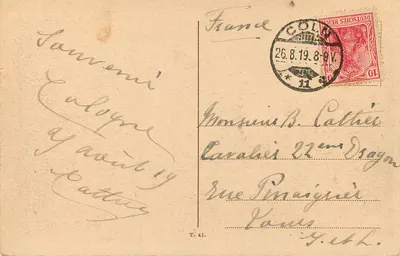 France
CÖLN
26.8.19.8-9V.
* 11 a
DEUTSCHES REICH
10
Souvenir
Cologne
août 19
Monsieur B. Cattier
Cavalier 22eme Dragon
Rue
Tours
I. et L.
T. 41.